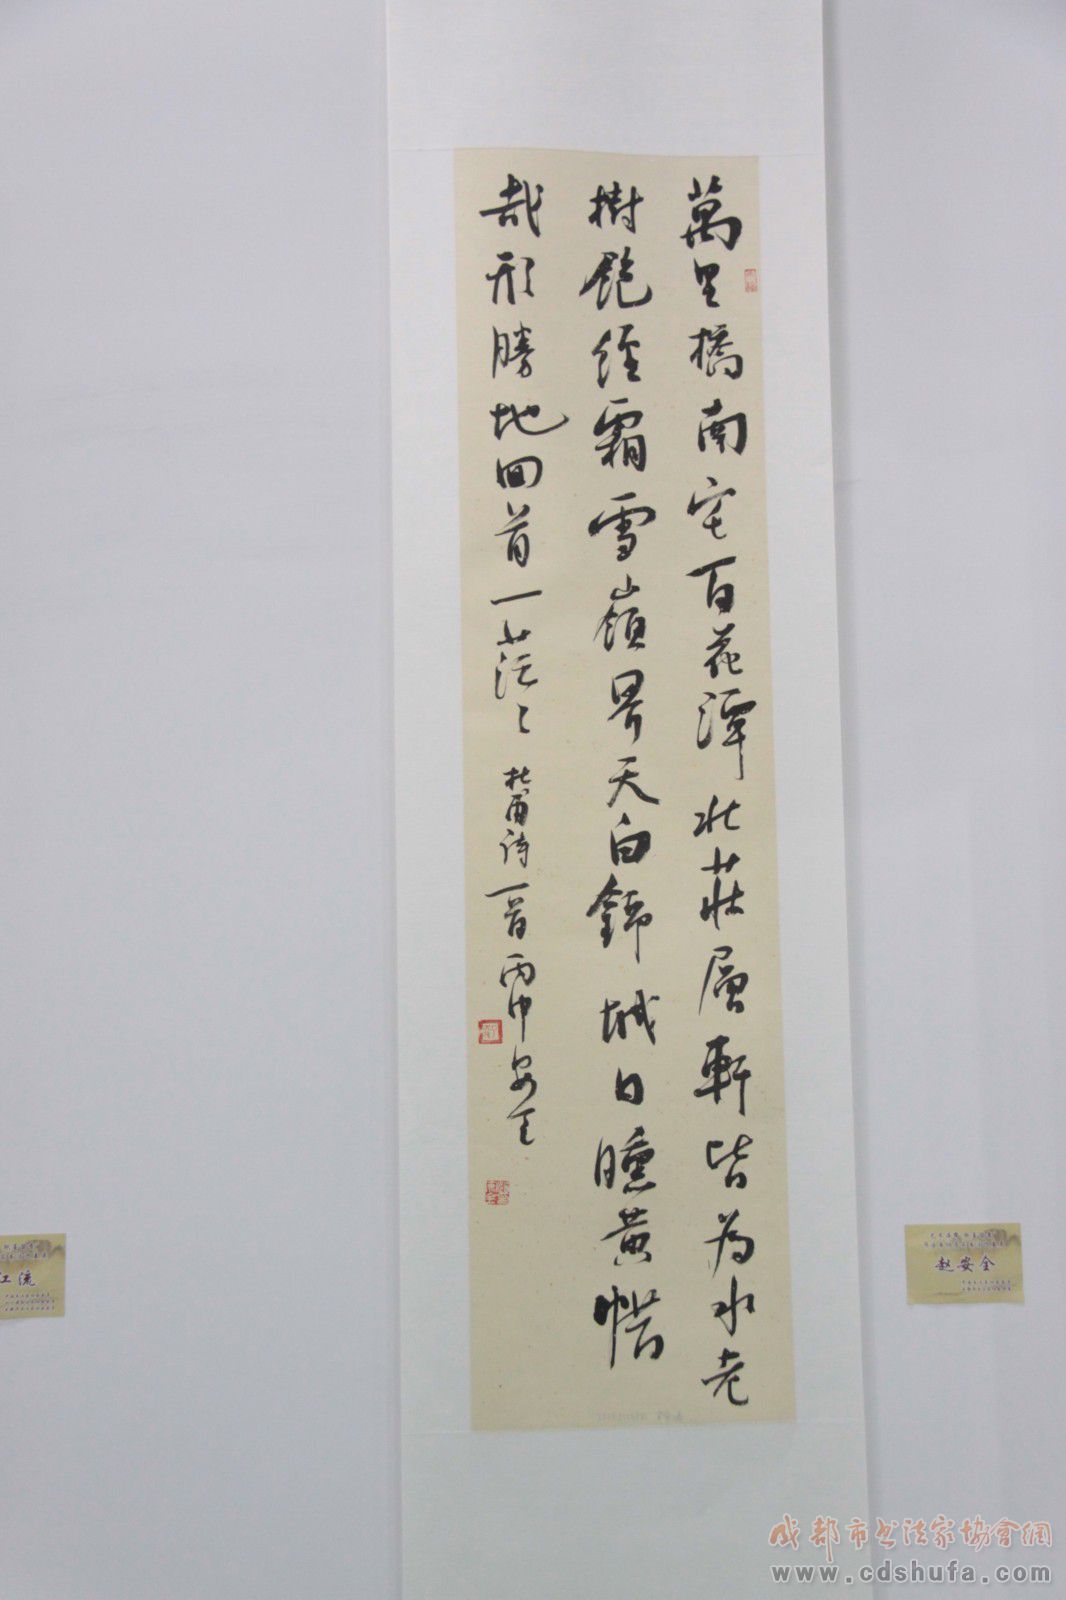 萬里橋南宅百花潭北莊層軒皆為水老
樹飽經霜雪嶺界天白錦城日曛黃惜
哉形勝地回首一茫〻 杜甫诗一首 丙申安全
赵安全
江流
成都市书法家协會網
www.cdshufa.com